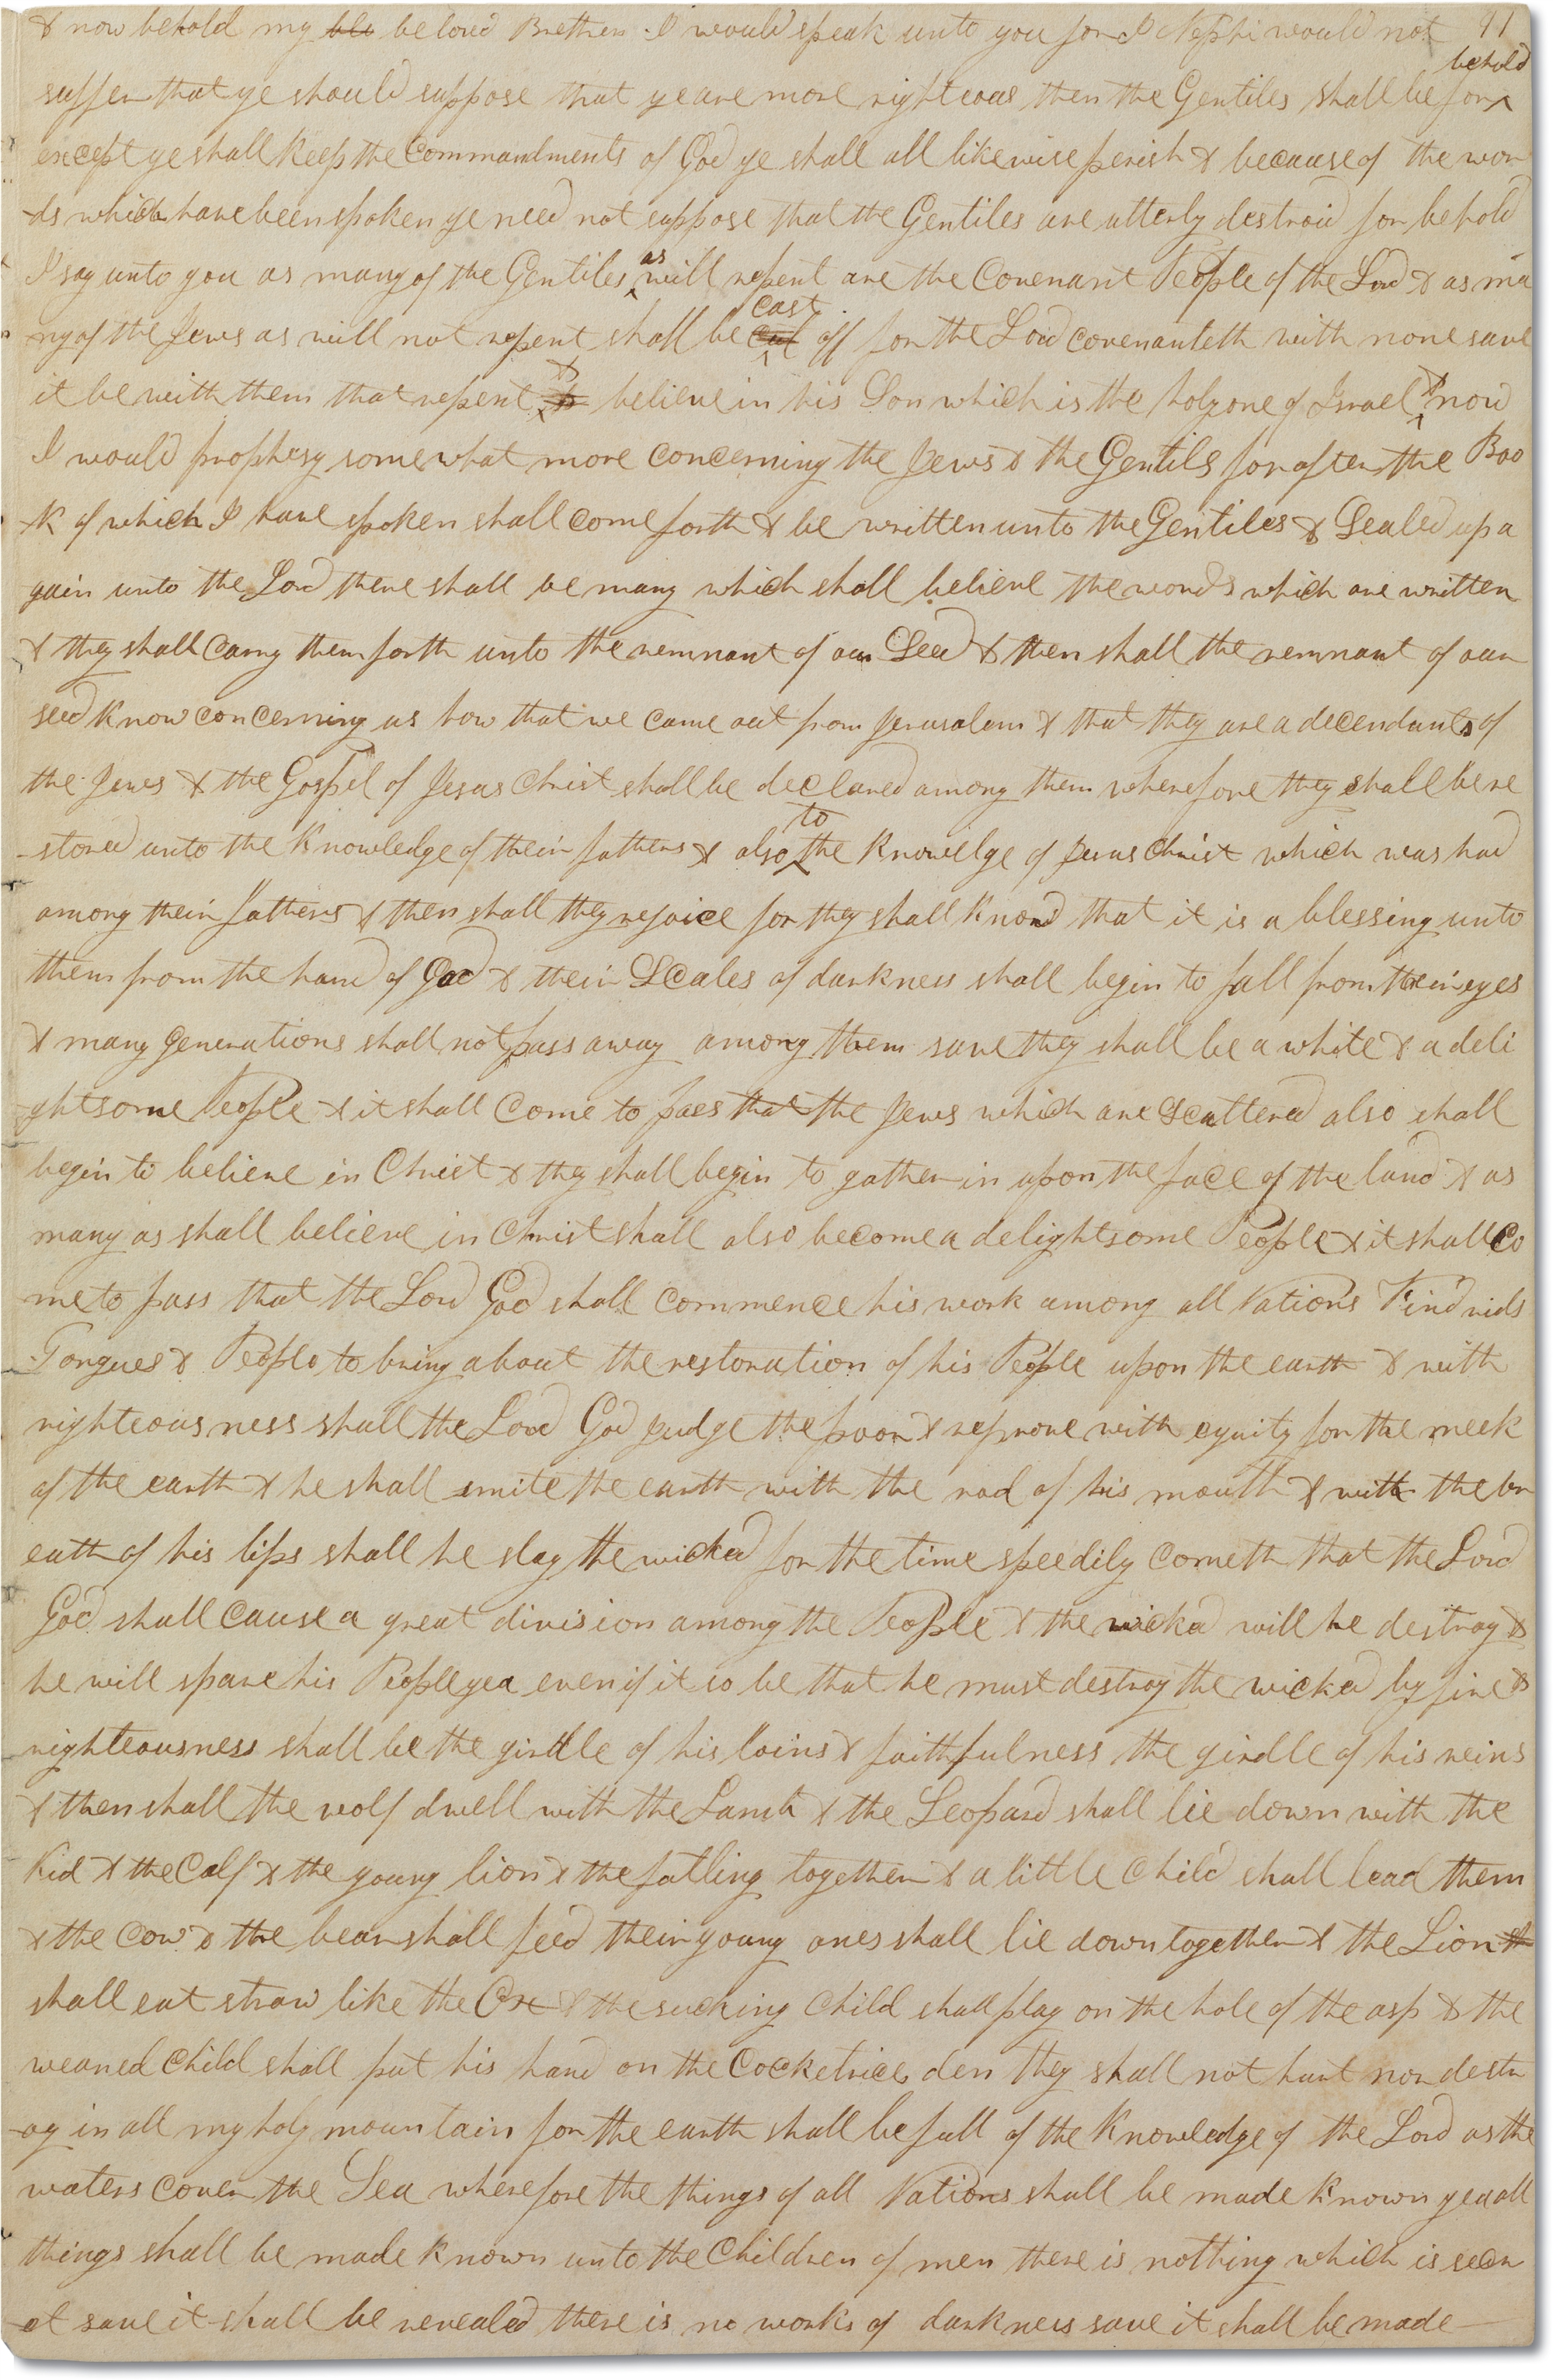 & now behold my blo beloved Brethren I would speak unto you for I Nephi would not 91
behold
suffer that ye should suppose that ye are more righteous then the Gentiles shall be for
except ye shall keep the commandments of God ye shall all likewise perish & because of the wor
-ds which have been spoken ye need not suppose that the Gentiles are utterly destroid for behold
I say unto you as many of the Gentiles as will repent are the Covenant People of the Lord & as ma
cast
ny of the Jews as will not repent shall be cut off for the Lord covenanteth with none save
it be with them that repent & believe in his Son which is the holy one of Israel & now
I would prophesy somewhat more concerning the Jews & the Gentils for after the Boo
-k of which I have spoken shall come forth & be written unto the Gentiles & Sealed up a
gain unto the Lord there shall be many which shall believe the words which are written
& they shall carry them forth unto the remnant of our Seed & then shall the remnant of our
seed know concerning us how that we came out from Jerusalem & that they are a decendants of
the Jews & the Gospel of Jesus Christ shall be declared among them wherefore they shall be re
to
-stored unto the knowledge of their fathers & also the knowelge of Jesus Christ which was had
among their fathers & then shall they rejoice for they shall know that it is a blessing unto
them from the hand of God & their Scales of darkness shall begin to fall from their eyes
& many generations shall not pass away among them save they shall be a white & a deli
-ghtsome People & it shall come to pass that the Jews which are scattered also shall
begin to believe in Christ & they shall begin to gather in upon the face of the land & as
many as shall believe in Christ shall also become a delightsome People & it shall co
me to pass that the Lord God shall commence his work among all Nations Kindrids
Tongues & People to bring about the restoration of his People upon the earth & with
righteousness shall the Lord God judge the poor & reprove with equity for the meek
of the earth & he shall smite the earth with the rod of his mouth & with the br
eath of his lips shall he slay the wicked for the time speedily cometh that the Lord
God shall cause a great division among the People & the wicked will he destroy &
he will spare his People yea even if it so be that he must destroy the wicked by fire &
righteousness shall be the girdle of his loins & faithfulness the girdle of his reins
& then shall the wolf dwell with the Lamb & the Leopard shall lie down with the
kid & the Calf & the young lion & the fatling together & a little child shall lead them
& the cow & the bear shall feed their young ones shall lie down together & the Lion
shall eat straw like the Ox & the sucking child shall play on the hole of the asp & the
weaned child shall put his hand on the Cocketrices den they shall not hurt nor destr
-oy in all my holy mountain for the earth shall be full of the knowledge of the Lord as the
waters cover the Sea wherefore the things of all Nations shall be made known yea all
things shall be made known unto the Children of men there is nothing which is secr
-et save it shall be revealed there is no works of darkness save it shall be made